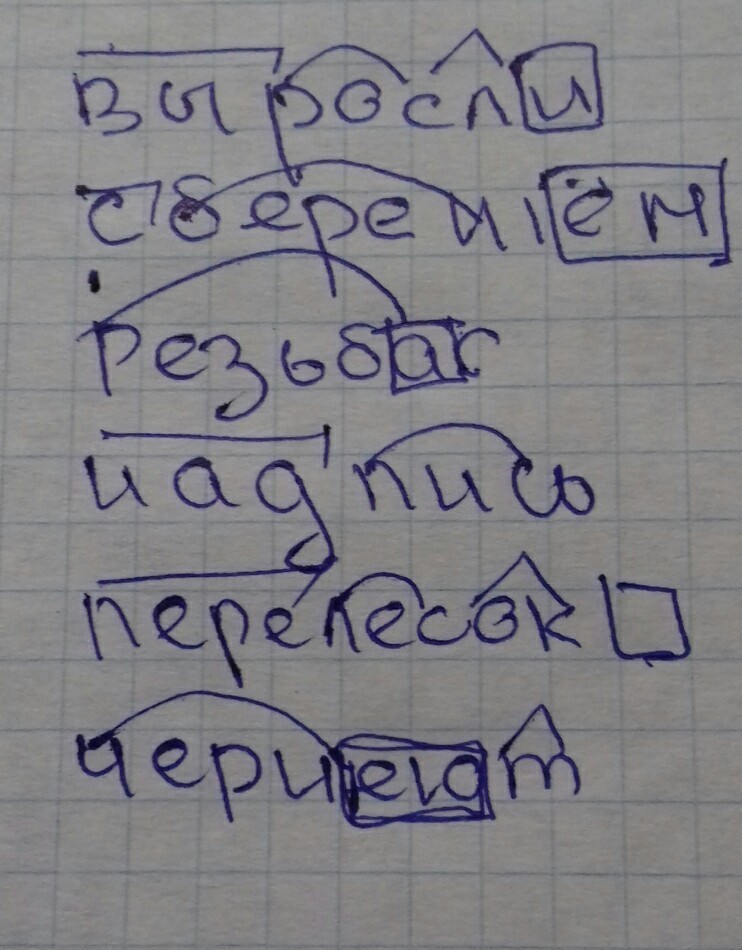 выросли
сбережём
резьба
надпись
перелесок